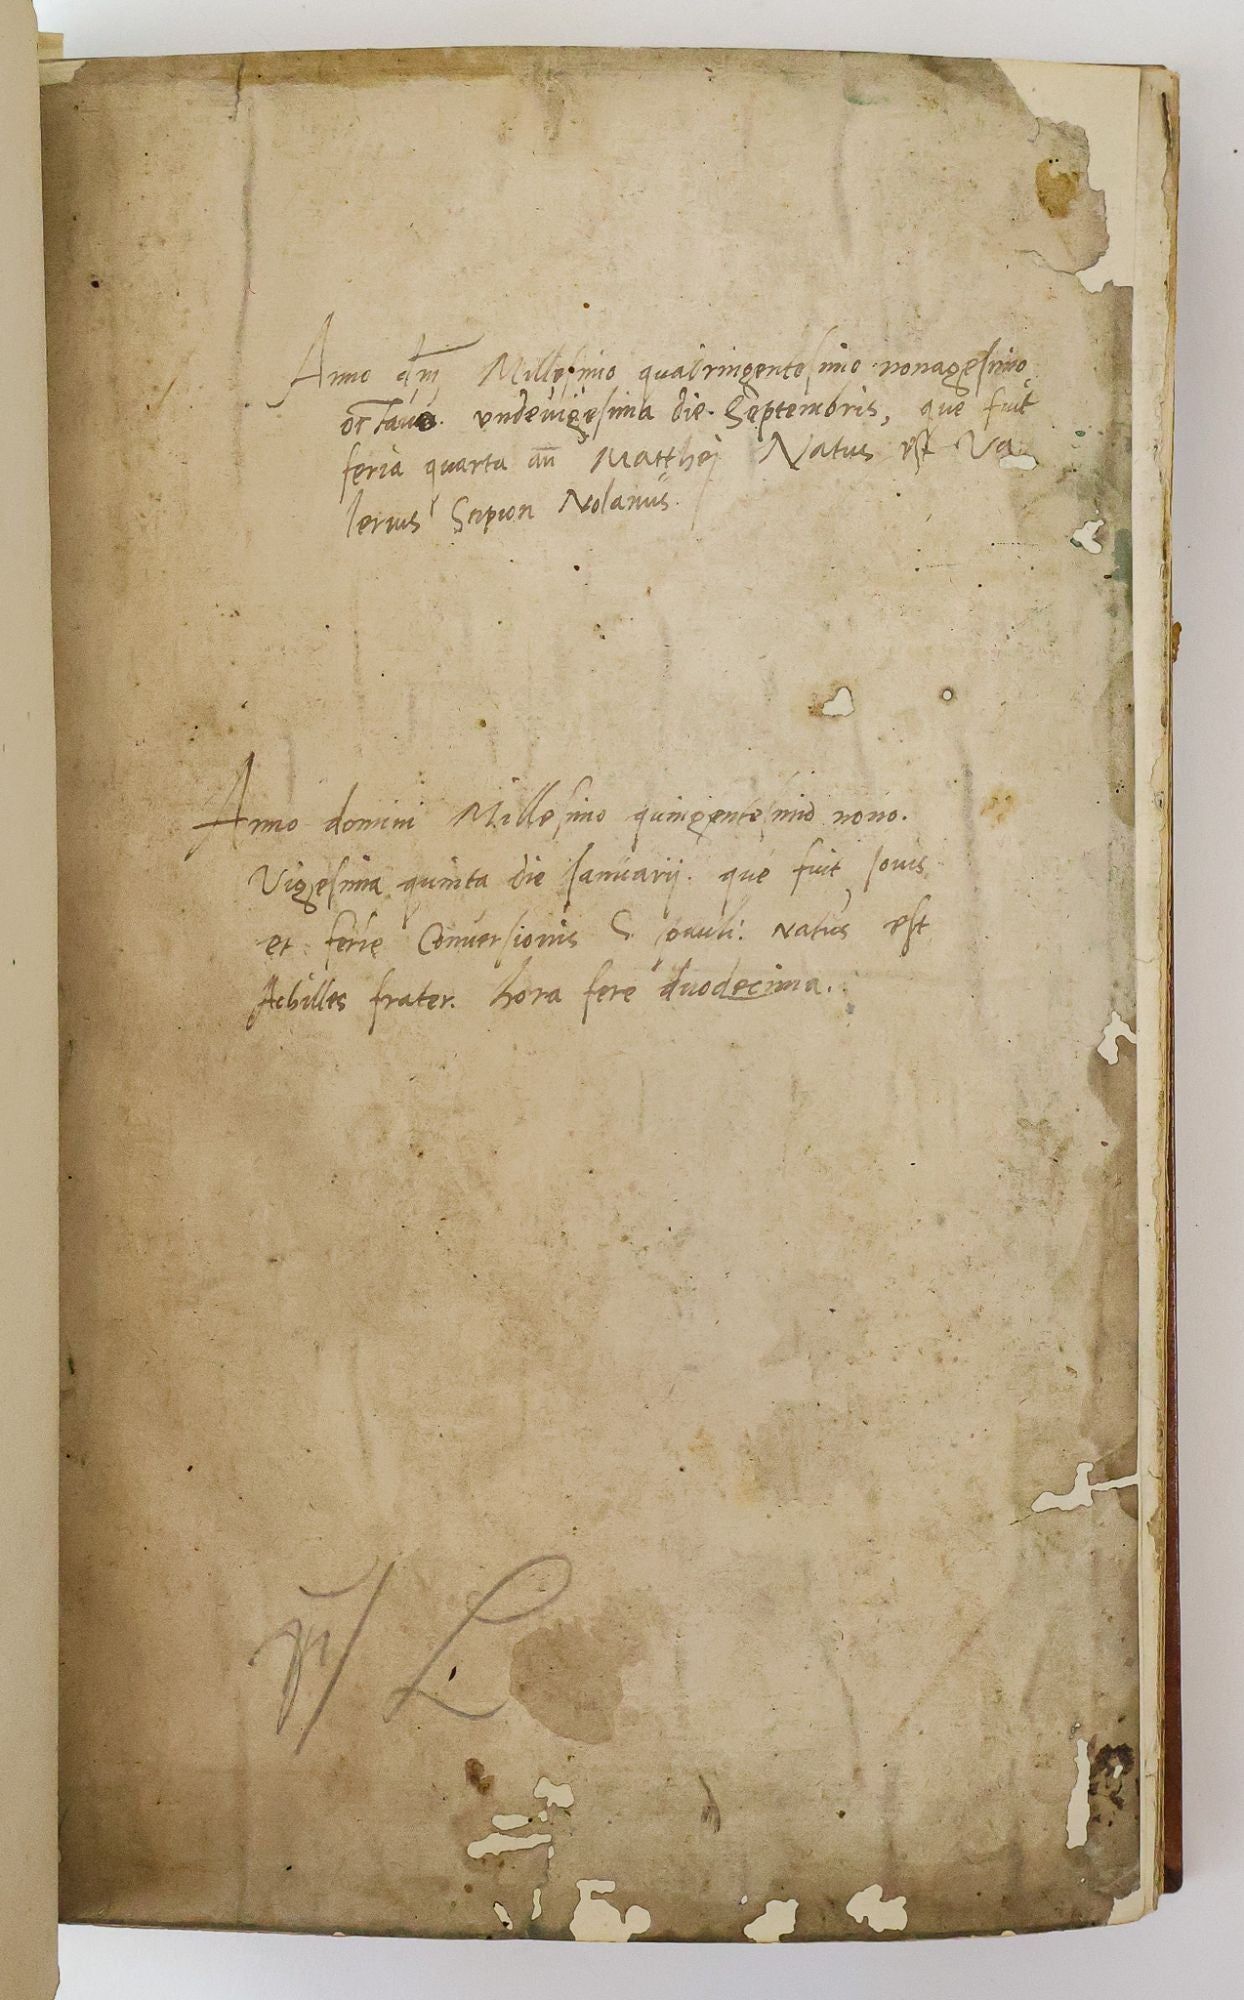 Anno dnj Millesimo quadringentesimo nonagesimo
octavo. undevigesima die. Septembris, que fuit
feria quarta an Matthej Natus est Va
lerius Scipion Nolanus.
Anno domini Millesimo quingentesimo nono.
Vigesima quinta die Ianuarij. que fuit Iovis
et ferie Conversionis S. pauli: natus est
Achilles frater. hora fere duodecima.
L